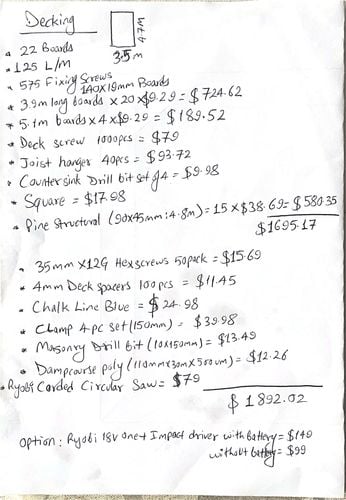 Decking
4.7M
3.5m
22 Boards
125 L/M
575 Fixing Screws
140x19mm Boards
3.9m long boards x 20 x $9.29 = $724.62
5.1m boards x 4 x $9.29 = $189.52
Deck screw 1000pcs = $79
Joist hanger 40pcs = $93.72
Counter sink Drill bit set of 4 = $9.98
Square = $17.98
Pine Structural (90x45mm: 4.8m) = 15 x $38.69 = $580.35
$1695.17
35mm x 12G Hex screws 50pack = $15.69
4mm Deck spacers 100pcs = $11.45
Chalk Line Blue = $24.98
Clamp 4pc set (150mm) = $39.98
Masonry Drill bit (10x150mm) = $13.49
Dampcourse poly (110mmx30mx500um) = $12.26
Ryobi Corded Circular Saw = $79
$1892.02
Option: Ryobi 18v one+ Impact driver with battery = $149
without battery = $99